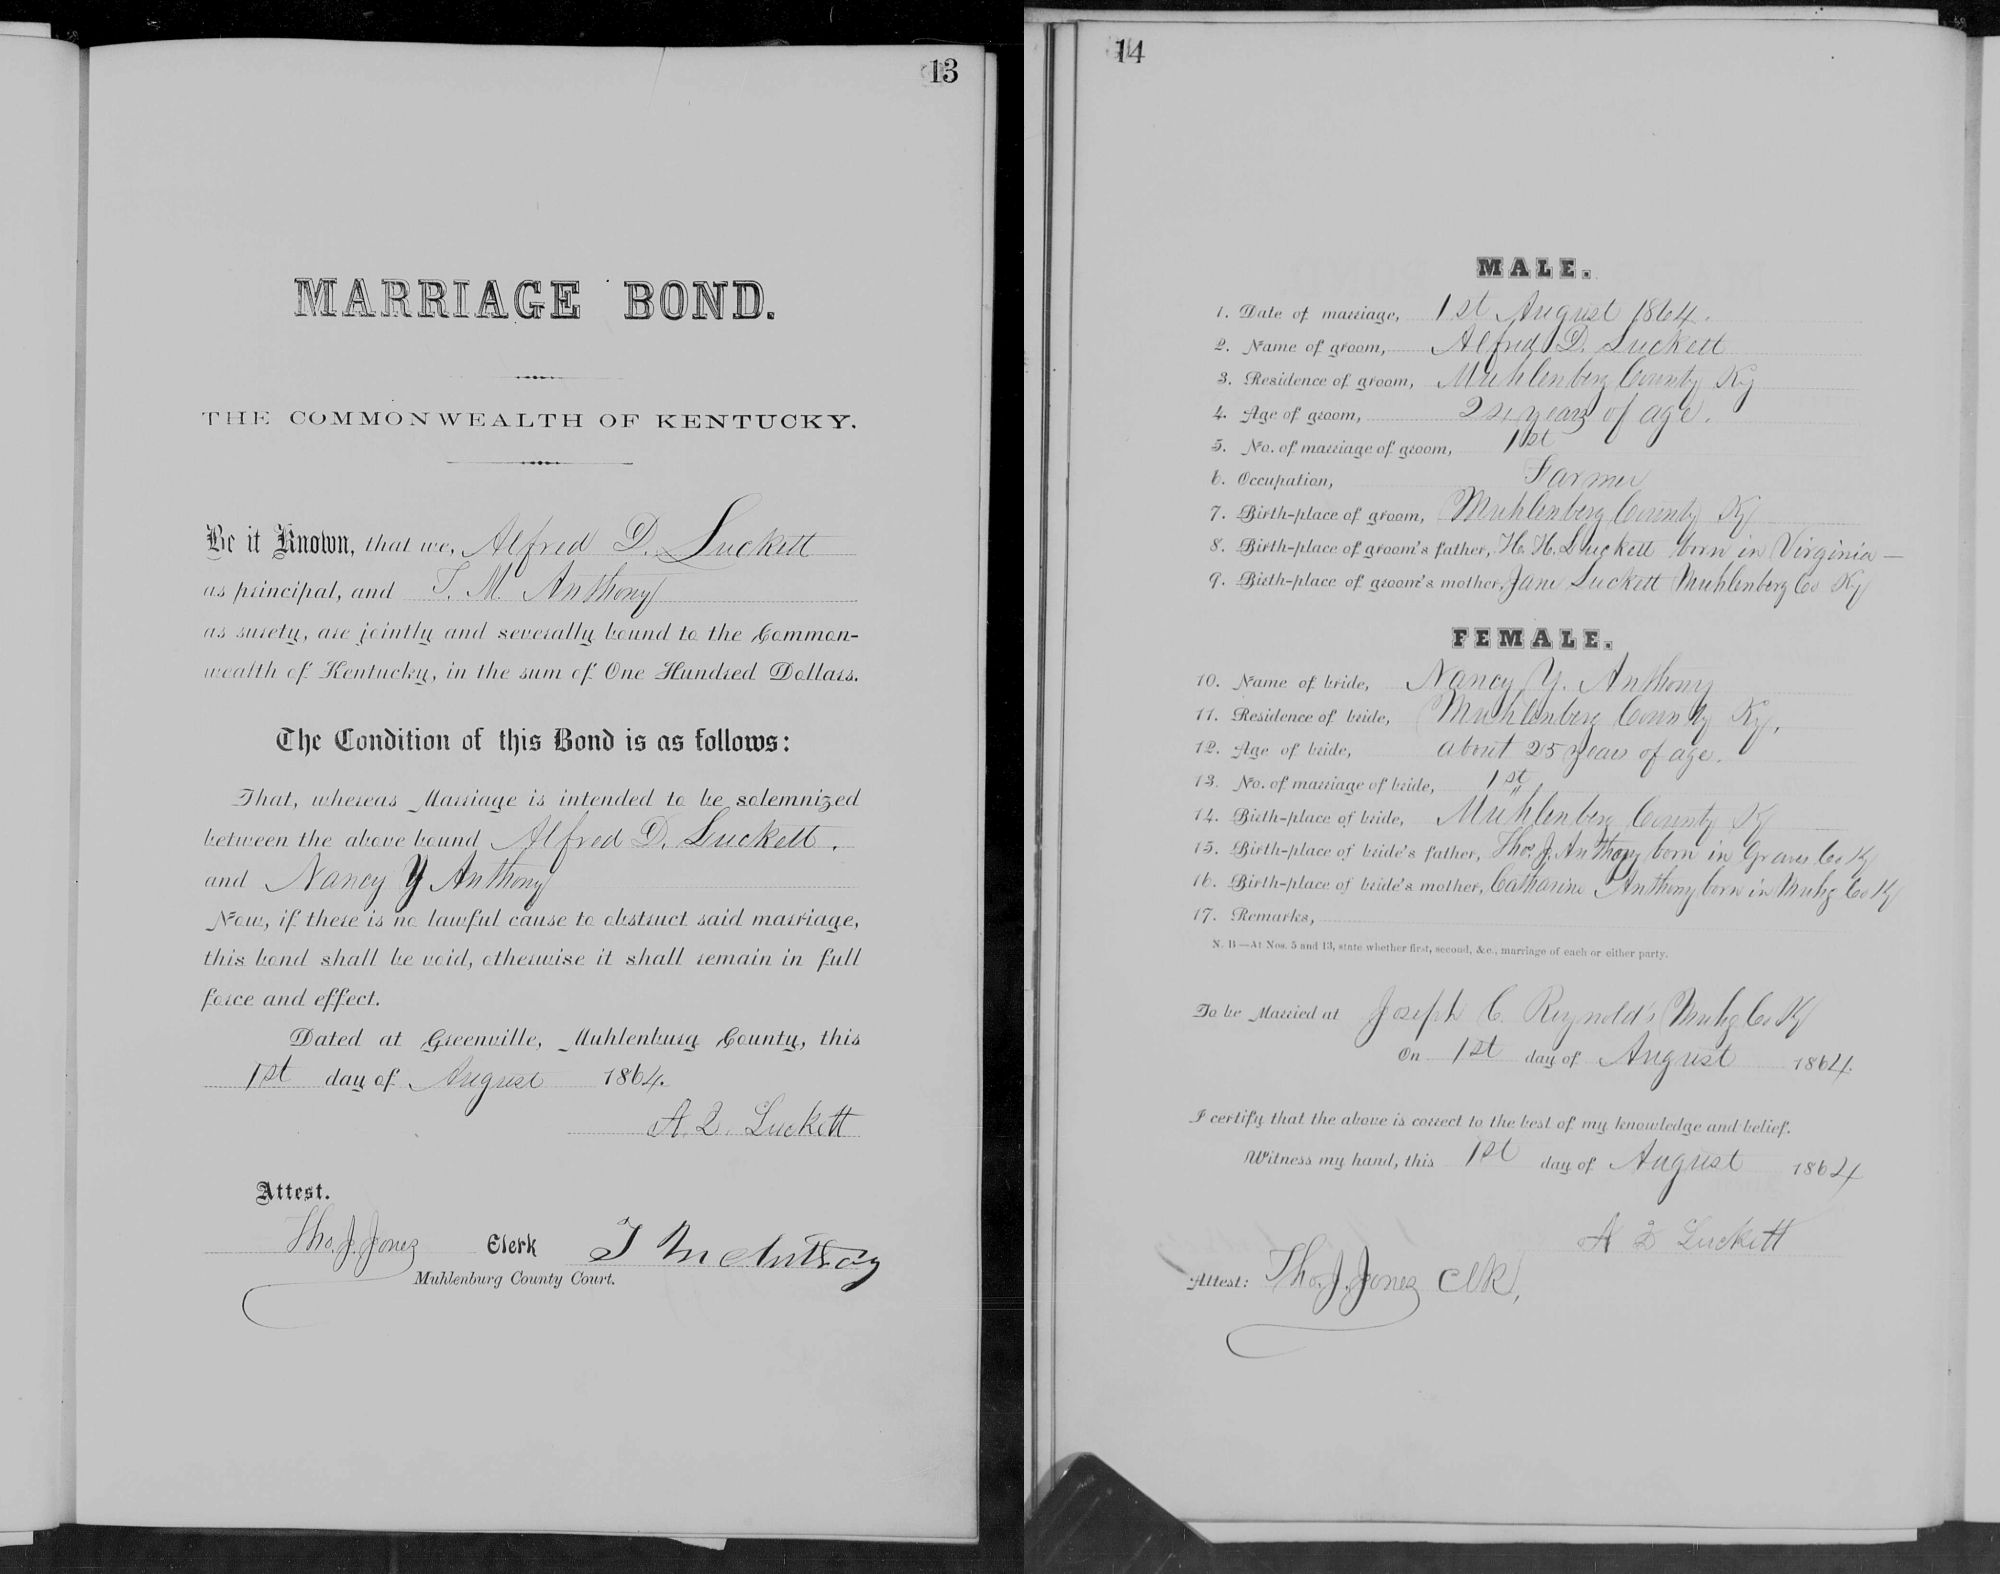 13
MARRIAGE BOND.
THE COMMONWEALTH OF KENTUCKY.
Be it Known, that we, Alfred D. Luckett
as principal, and T. M. Anthony
as surety, are jointly and severally bound to the Common-
wealth of Kentucky, in the sum of One Hundred Dollars.
The Condition of this Bond is as follows:
That, whereas Marriage is intended to be solemnized
between the above bound Alfred D. Luckett.
and Nancy Y Anthony
Now, if there is no lawful cause to obstruct said marriage,
this bond shall be void, otherwise it shall remain in full
force and effect.
Dated at Greenville, Muhlenburg County, this
1st day of August 1864.
A. D. Luckett
Attest.
Tho. J. Jones Clerk T M Anthony
Muhlenburg County Court.
14
MALE.
1. Date of marriage, 1st August 1864.
2. Name of groom, Alfred D. Luckett
3. Residence of groom, Muhlenberg County Ky
4. Age of groom, years of age.
5. No. of marriage of groom, 1st
6. Occupation, Farmer
7. Birth-place of groom, Muhlenberg County Ky
8. Birth-place of groom's father, H. H. Luckett born in Virginia —
9. Birth-place of groom's mother, Jane Luckett Muhlenberg Co Ky
FEMALE.
10. Name of bride, Nancy Y. Anthony
11. Residence of bride, Muhlenberg County Ky,
12. Age of bride, about 25 years of age.
13. No. of marriage of bride, 1st
14. Birth-place of bride, Muhlenberg County Ky
15. Birth-place of bride's father, Tho. J. Anthony born in Graves Co Ky
16. Birth-place of bride's mother, Catharine Anthony born in Muhg Co Ky
17. Remarks,
N. B—At Nos. 5 and 13, state whether first, second, &c., marriage of each or either party.
To be Married at Joseph C. Reynolds Muhg Co Ky
On 1st day of August 1864.
I certify that the above is correct to the best of my knowledge and belief.
Witness my hand, this 1st day of August 1864
A D Luckett
Attest: Tho. J. Jones Clk,